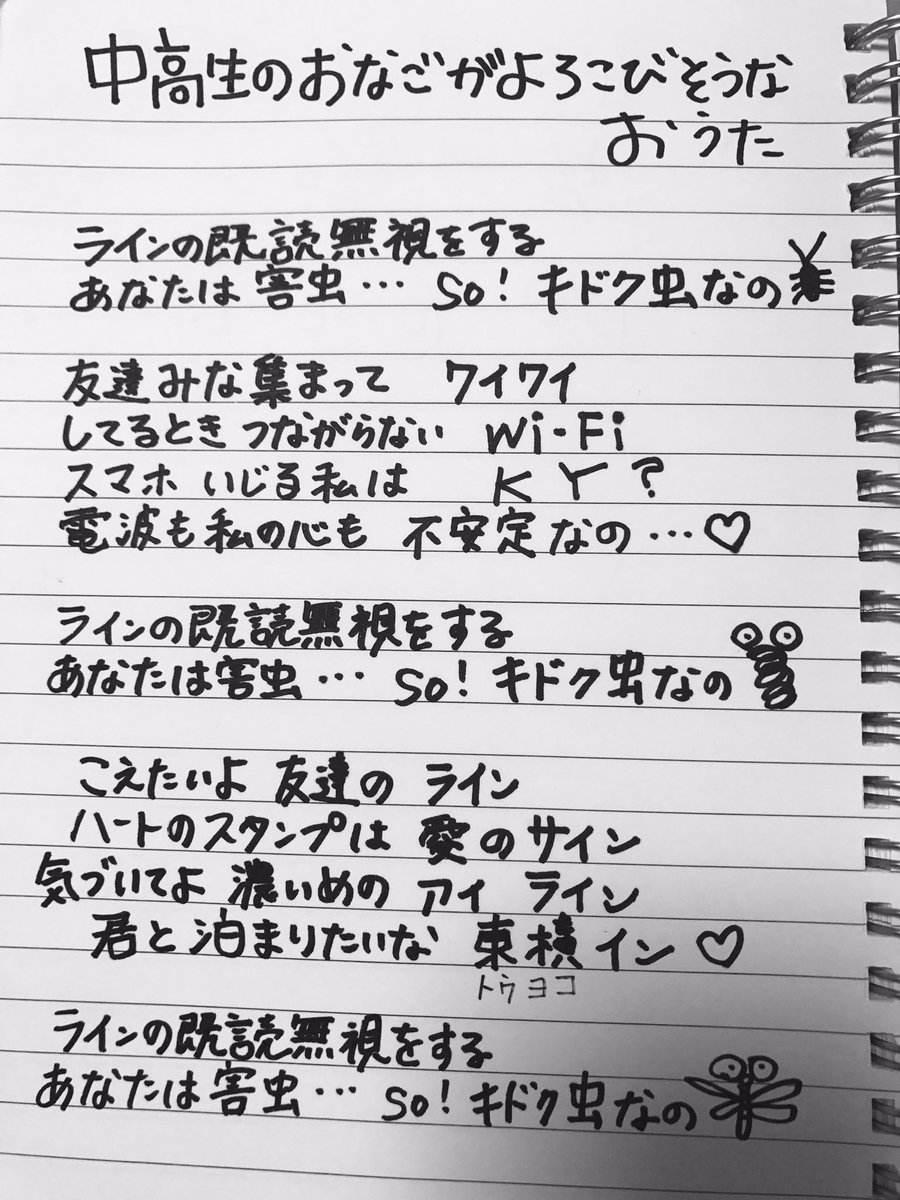 中高生のおなごがよろこびそうな
おうた
ラインの既読無視をする
あなたは害虫… so! キドク虫なの
友達みな集まって ワイワイ
してるとき つながらない Wi-Fi
スマホ いじる私は KY?
電波も私の心も 不安定なの…♡
ラインの既読無視をする
あなたは害虫… so! キドク虫なの
こえたいよ 友達の ライン
ハートのスタンプは 愛のサイン
気づいてよ 濃いめの アイ ライン
君と泊まりたいな 東横イン♡
トウヨコ
ラインの既読無視をする
あなたは害虫… so! キドク虫なの